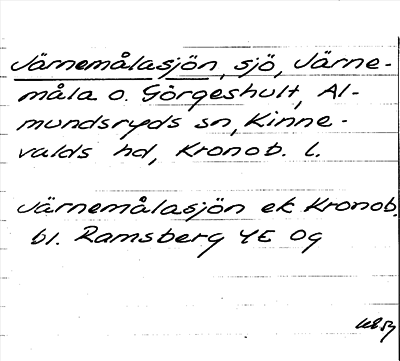 Järnemålasjön, sjö, Järne-
måla o. Görgeshult, Al-
mundsryds sn, Kinne-
valds hd, Kronob. l.
Järnemålasjön ek Kronob.
bl. Ramsberg 4E 0g